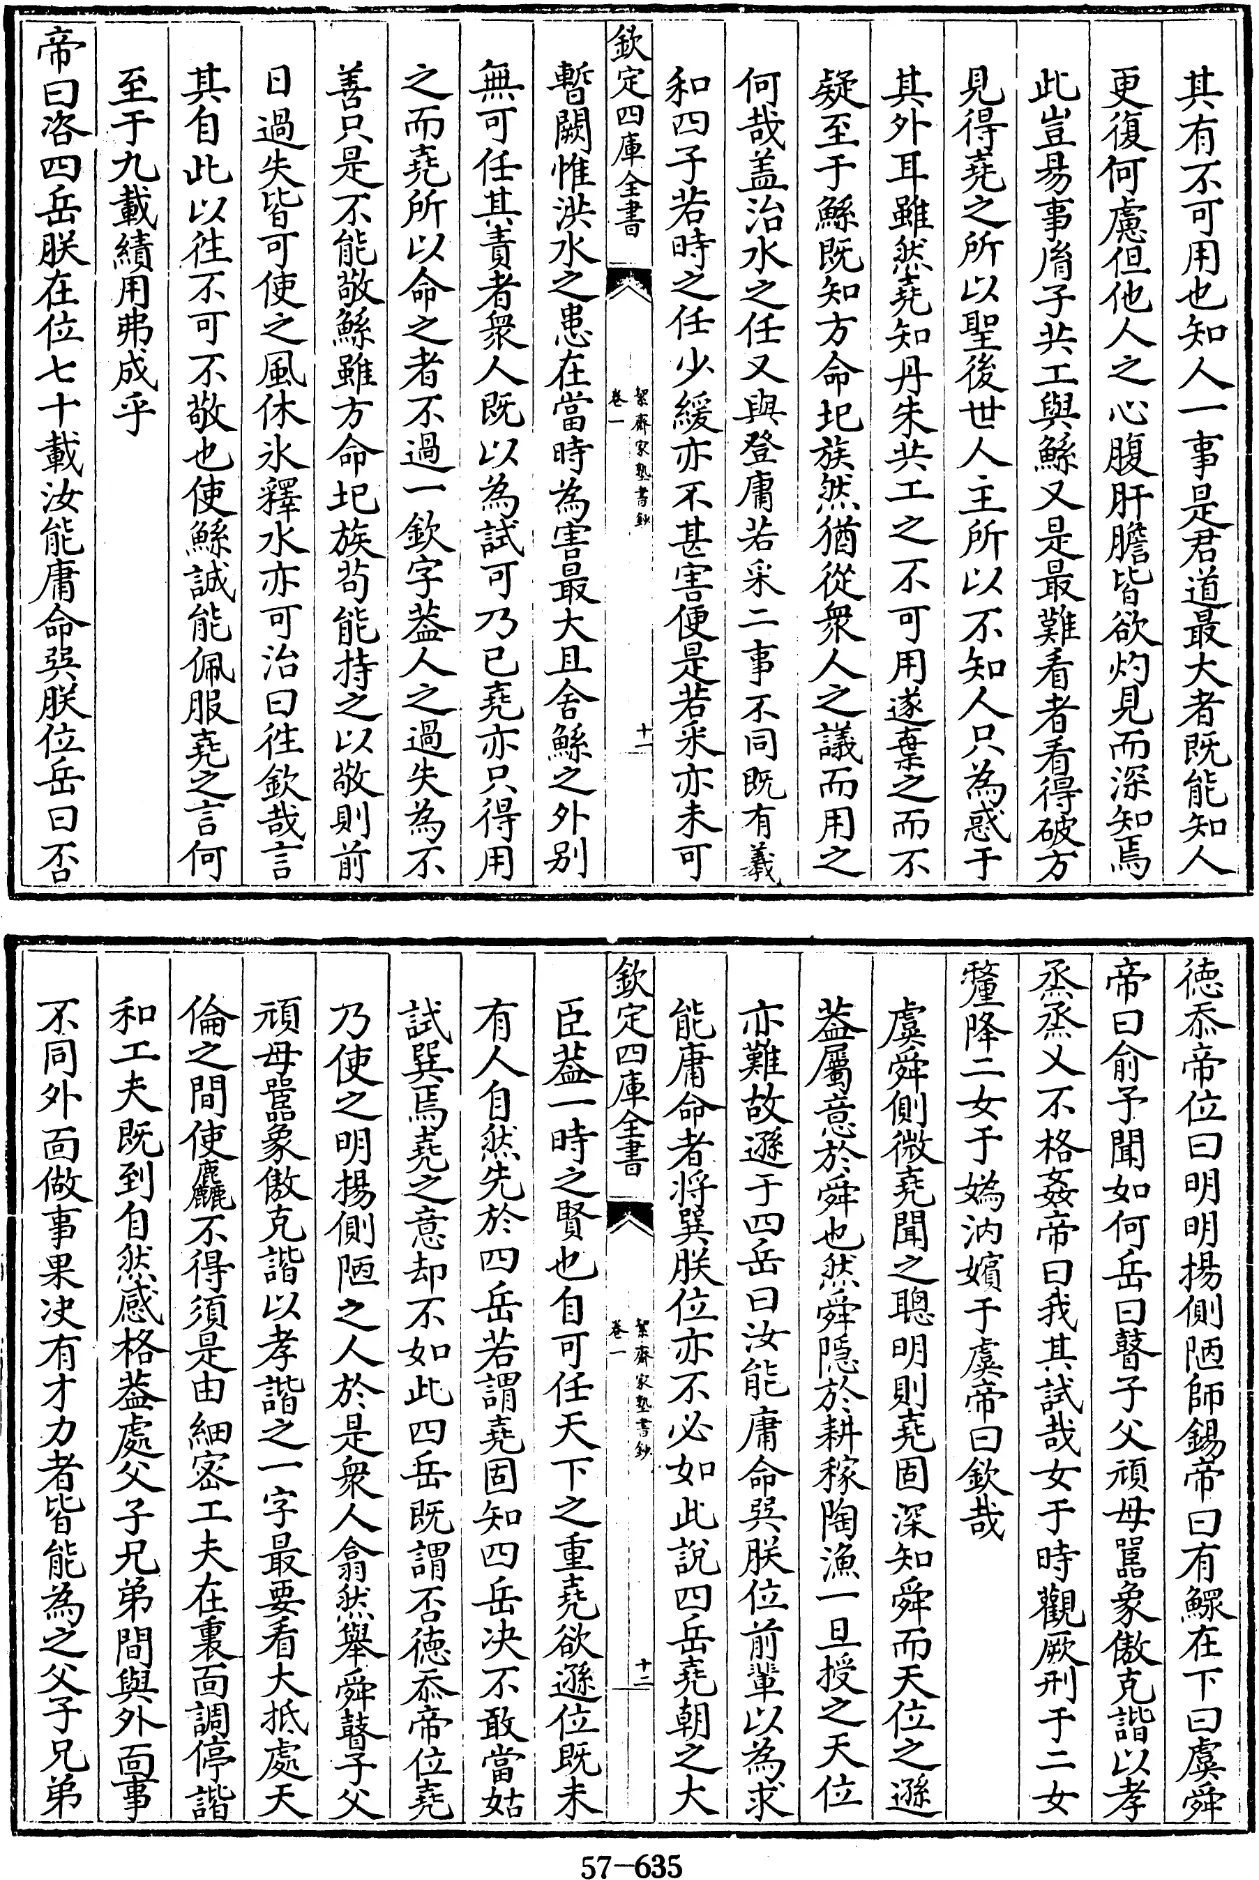 其有不可用也知人一事是君道最大者既能知人
更復何慮但他人之心腹肝膽皆欲灼見而深知焉
此豈易事胤子共工與鯀又是最難看者看得破方
見得堯之所以聖後世人主所以不知人只為惑于
其外耳雖然堯知丹朱共工之不可用遂棄之而不
疑至于鯀既知方命圮族然猶從衆人之議而用之
何哉盖治水之任又與登庸若采二事不同既有羲
和四子若時之任少緩亦不甚害便是若采亦未可
欽定四庫全書
絜齋家塾書鈔
卷一
十一
暫闕惟洪水之患在當時為害最大且舍鯀之外别
無可任其責者衆人既以為試可乃已堯亦只得用
之而堯所以命之者不過一欽字葢人之過失為不
善只是不能敬鯀雖方命圮族苟能持之以敬則前
日過失皆可使之風休氷釋水亦可治曰徃欽哉言
其自此以徃不可不敬也使鯀誠能佩服堯之言何
至于九載績用弗成乎
帝曰咨四岳朕在位七十載汝能庸命巽朕位岳曰否
德忝帝位曰明明揚側陋師錫帝曰有鰥在下曰虞舜
帝曰俞予聞如何岳曰瞽子父頑母嚚象傲克諧以孝
烝烝乂不格姦帝曰我其試哉女于時觀厥刑于二女
釐降二女于媯汭嬪于虞帝曰欽哉
虞舜側微堯聞之聰明則堯固深知舜而天位之遜
葢屬意於舜也然舜隠於耕稼陶漁一旦授之天位
亦難故遜于四岳曰汝能庸命巽朕位前輩以為求
能庸命者將巽朕位亦不必如此說四岳堯朝之大
欽定四庫全書
絜齋家塾書鈔
卷一
十二
臣葢一時之賢也自可任天下之重堯欲遜位既未
有人自然先於四岳若謂堯固知四岳决不敢當姑
試巽焉堯之意却不如此四岳既謂否德忝帝位堯
乃使之明揚側陋之人於是衆人翕然舉舜瞽子父
頑母嚚象傲克諧以孝諧之一字最要看大抵處天
倫之間使麤不得須是由細宻工夫在裏面調停諧
和工夫既到自然感格葢處父子兄弟間與外面事
不同外面做事果决有才力者皆能為之父子兄弟
57-635